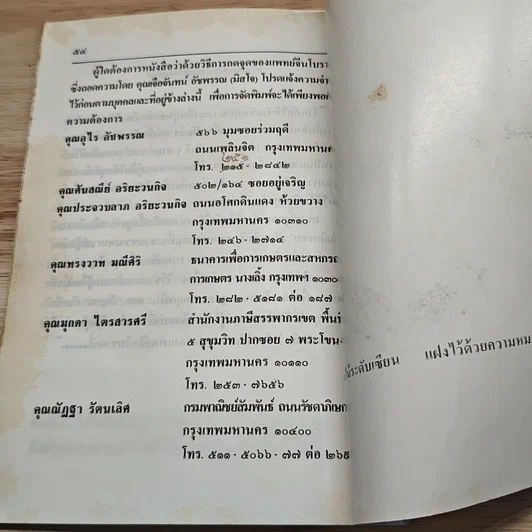 ๕๔
ผู้ใดต้องการหนังสือว่าด้วยวิธีการกดจุดของแพทย์จีนโบรา
ซึ่งถอดความโดย คุณเจือจันทน์ อัชพรรณ (มิสโจ) โปรดแจ้งความจำ
ไว้ก่อนตามบุคคลและที่อยู่ข้างล่างนี้ เพื่อการจัดพิมพ์จะได้เพียงพอ
ความต้องการ
คุณอุไร อัชพรรณ ๕๖๖ มุมซอยร่วมฤดี
ถนนเพลินจิต กรุงเทพมหาน
๒๕๑
โทร. ๒๑๕ - ๒๘๔๒
คุณศันสณีย์ อริยะวนกิจ ๕๐๒/๑๖๔ ซอยอยู่เจริญ
คุณประจวบลาภ อริยะวนกิจ ถนนอโศกดินแดง ห้วยขวาง
กรุงเทพมหานคร ๑๐๓๑๐
โทร. ๒๔๖ - ๒๗๑๔
คุณทรงวาท มณีศิริ ธนาคารเพื่อการเกษตรและสหกรณ
การเกษตร นางเลิ้ง กรุงเทพฯ ๑๐๓๐
โทร. ๒๘๒ - ๕๑๘๑ ต่อ ๑๘๗
คุณมุกดา ไตรสารศรี สำนักงานภาษีสรรพากรเขต พื้นที่
๕ สุขุมวิท ปากซอย ๗ พระโขนง
กรุงเทพมหานคร ๑๐๑๑๐
โทร. ๒๕๓ - ๗๖๕๖
คุณณัฏฐา รัตนเลิศ กรมพาณิชย์สัมพันธ์ ถนนรัชดาภิเษก
กรุงเทพมหานคร ๑๐๙๐๐
โทร. ๕๑๑ - ๕๐๖๖ - ๗๗ ต่อ ๒๖๕
ระดับเซียน แฝงไว้ด้วยความหม